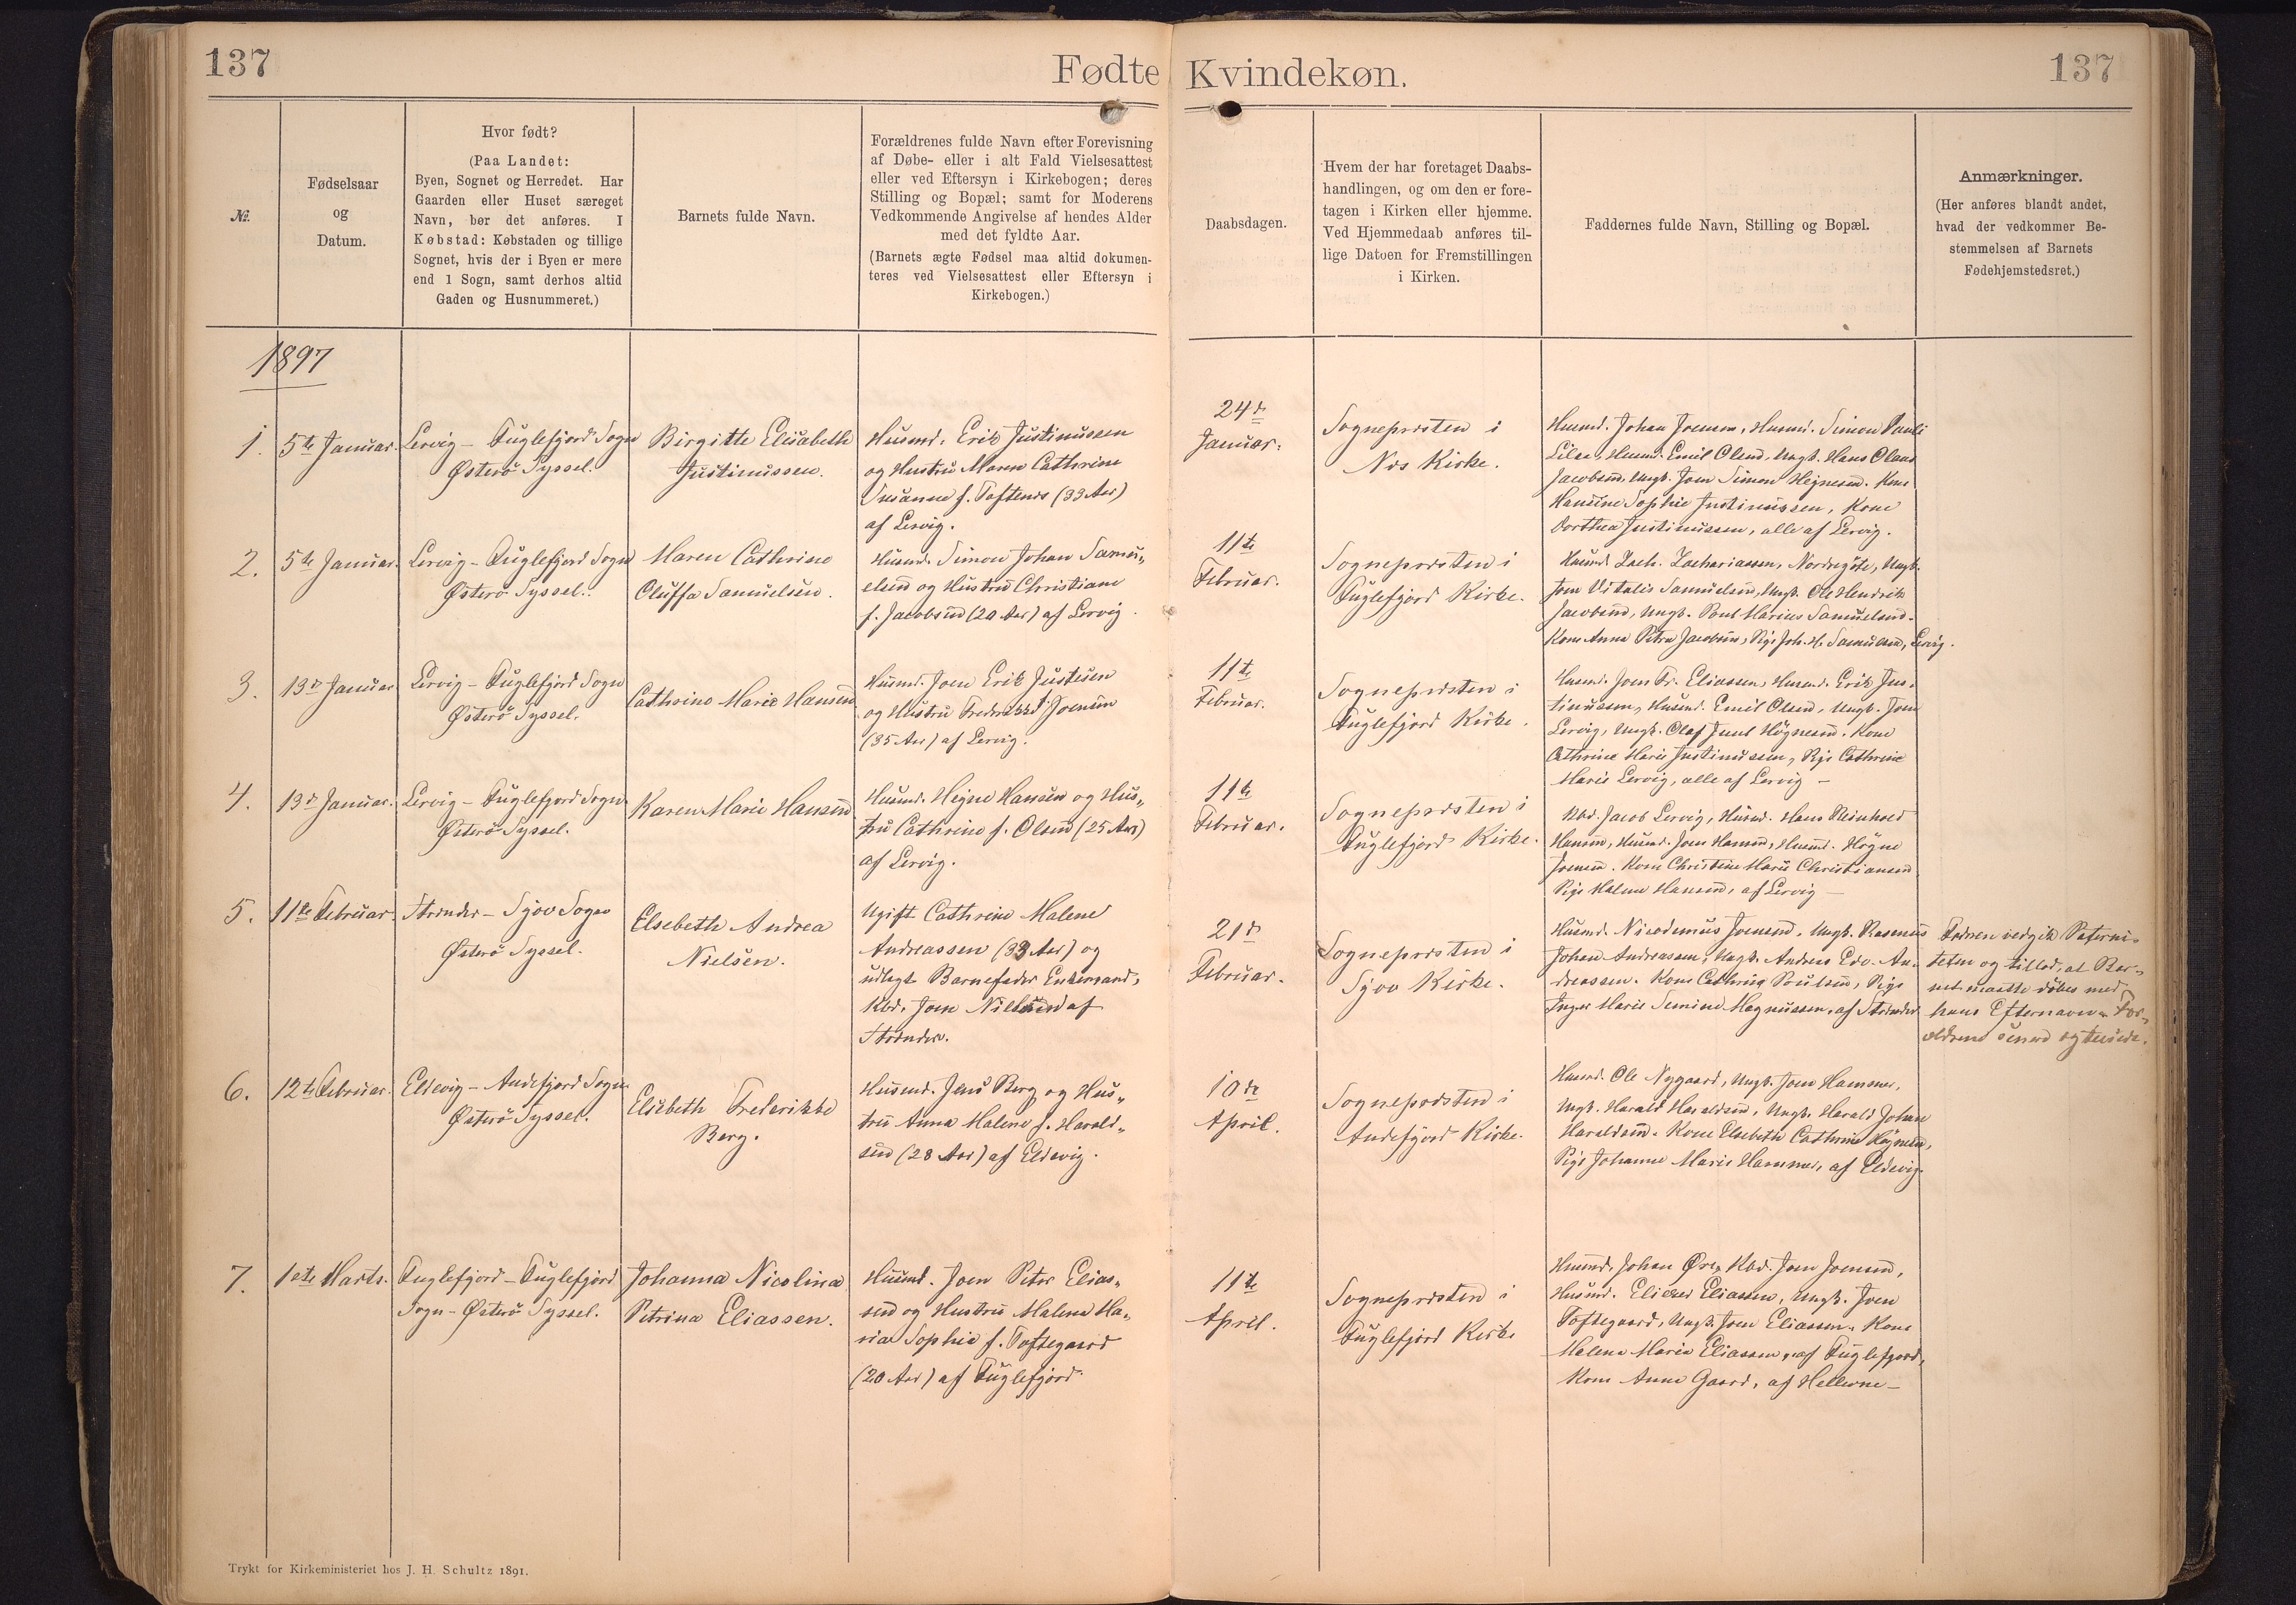 137
Fødte Kvindekøn.
137
№.
Fødselsaar
og
Datum.
Hvor født?
(Paa Landet:
Byen, Sognet og Herredet. Har
Gaarden eller Huset særeget
Navn, bør det anføres. I
Købstad: Købstaden og tillige
Sognet, hvis der i Byen er mere
end 1 Sogn, samt derhos altid
Gaden og Husnummeret.)
Barnets fulde Navn.
Forældrenes fulde Navn efter Forevisning
af Døbe- eller i alt Fald Vielsesattest
eller ved Eftersyn i Kirkebogen; deres
Stilling og Bopæl; samt for Moderens
Vedkommende Angivelse af hendes Alder
med det fyldte Aar.
(Barnets ægte Fødsel maa altid dokumen-
teres ved Vielsesattest eller Eftersyn i
Kirkebogen.)
Daabsdagen.
Hvem der har foretaget Daabs-
handlingen, og om den er fore-
tagen i Kirken eller hjemme.
Ved Hjemmedaab anføres til-
lige Datoen for Fremstillingen
i Kirken.
Faddernes fulde Navn, Stilling og Bopæl.
Anmærkninger.
(Her anføres blandt andet,
hvad der vedkommer Be-
stemmelsen af Barnets
Fødehjemstedsret.)
1897
1.
5te Januar.
Lervig - Fuglefjord Sogn
Østerö Syssel.
Birgitte Elisabeth
Justinussen.
Husmd. Erik Justinussen
og Hustru Maren Cathrine
Susanne f. Toftenes (33 Aar)
af Lervig.
24de
Januar.
Sognepræsten i
Næs Kirke.
Husmd. Johan Joensen, Husmd. Simon Pauli
Husmd. Emil Olsen, Ungk. Hans Olaus
Jacobsen, Ungk. Joen Simon Højnesen. Kone
Hansine Sophie Justinussen, Kone
Dorthea Justinussen, alle af Lervig.
2.
5te Januar.
Lervig - Fuglefjord Sogn
Østerö Syssel.
Maren Cathrine
Oluffa Samuelsen.
Husmd. Simon Johan Samu-
elsen og Hustru Christiane
f. Jacobsen (20 Aar) af Lervig.
11te
Februar.
Sognepræsten i
Fuglefjord Kirke.
Husmd. Zach. Zachariassen, Nordregöte, Ungk.
Joen Vitalis Samuelsen, Ungk. Ole Hendrik
Jacobsen, Ungk. Poul Marius Samuelsen.
Kone Anna Petra Jacobsen, Pige Joh. M. Samuelsen, Lervig.
3.
13de Januar
Lervig - Fuglefjord Sogn
Østerö Syssel.
Cathrine Marie Hansen
Husmd. Joen Erik Justesen
og Hustru Frederikke Joensen
(35 Aar) af Lervig.
11te
Februar.
Sognepræsten i
Fuglefjord Kirke.
Husmd. Joen Fr. Eliassen, Husmd. Erik Jus-
tinussen, Husmd. Emil Olsen, Ungk. Joen
Lervig, Ungk. Olaf Juul Högnesen. Kone
Cathrine Marie Justinussen, Pige Cathrine
Marie Lervig, alle af Lervig -
4.
13de Januar.
Lervig - Fuglefjord Sogn
Østerö Syssel.
Karen Marie Hansen
Husmd. Hejne Hansen og Hus-
tru Cathrine f. Olsen (25 Aar)
af Lervig.
11te
Februar.
Sognepræsten i
Fuglefjord Kirke.
Kbd. Jacob Lervig, Husmd. Hans Reinhold
Hansen, Husmd. Joen Hansen, Husmd. Högne
Joensen. Kone Christine Marie Christiansen
Pige Malene Hansen, af Lervig -
5.
11te Februar.
Strænder - Sjov Sogn
Østerö Syssel.
Elsebeth Andrea
Nielsen.
Ugift Cathrine Malene
Andreassen (33 Aar) og
udlagt Barnefader Enkemand,
Kbd. Joen Nielsen af
Strænder.
21de
Februar.
Sognepræsten i
Sjov Kirke.
Husmd. Nicodemus Joensen, Ungk. Rasmus
Johan Andreassen, Ungk. Andreas Edv. An-
dreassen. Kone Cathrine Poulsen, Pige
Inger Marie Semine Magnussen, af Strænder
Faderen vedgik Paterni-
teten og tillod, at Bar-
net maatte døbes med
hans Efternavn. For-
ældrene
6.
12te Februar.
Eldevig - Andefjord Sogn
Østerö Syssel.
Elsebeth Frederikke
Berg.
Husmd. Jens Berg og Hus-
tru Anna Malene f. Harald-
sen (28 Aar) af Eldevig.
10de
April.
Sognepræsten i
Andefjord Kirke.
Husmd. Ole Nygaard, Ungk. Joen Hammer,
Ungk. Harald Haraldsen, Ungk. Harald Johan
Haraldsen. Kone Elsebeth Cathrine Højnesen,
Pige Johanne Marie Hammer, af Eldevig.
7.
1ste Marts.
Fuglefjord - Fuglefjord
Sogn - Østerö Syssel.
Johanna Nicolina
Petrina Eliassen.
Husmd. Joen Peter Elias-
sen og Hustru Malena Ma-
ria Sophie f. Toftegaard
(20 Aar) af Fuglefjord.
11te
April.
Sognepræsten i
Fuglefjord Kirke
Husmd. Johan Øre, Kbd. Joen Joensen,
Husmd. Elieser Eliassen, Ungk. Joen
Toftegaard, Ungk. Joen Eliassen. Kone
Malene Marie Eliassen, af Fuglefjord,
Kone Anne Gaard, af Hellerne -
Trykt for Kirkeministeriet hos J. H. Schultz 1891.